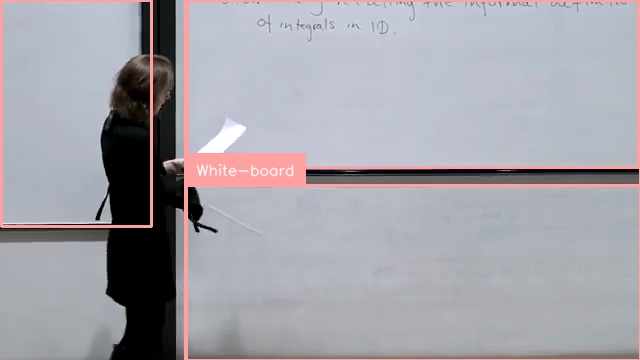 recalling the informal
of integrals in 1D.
White-board